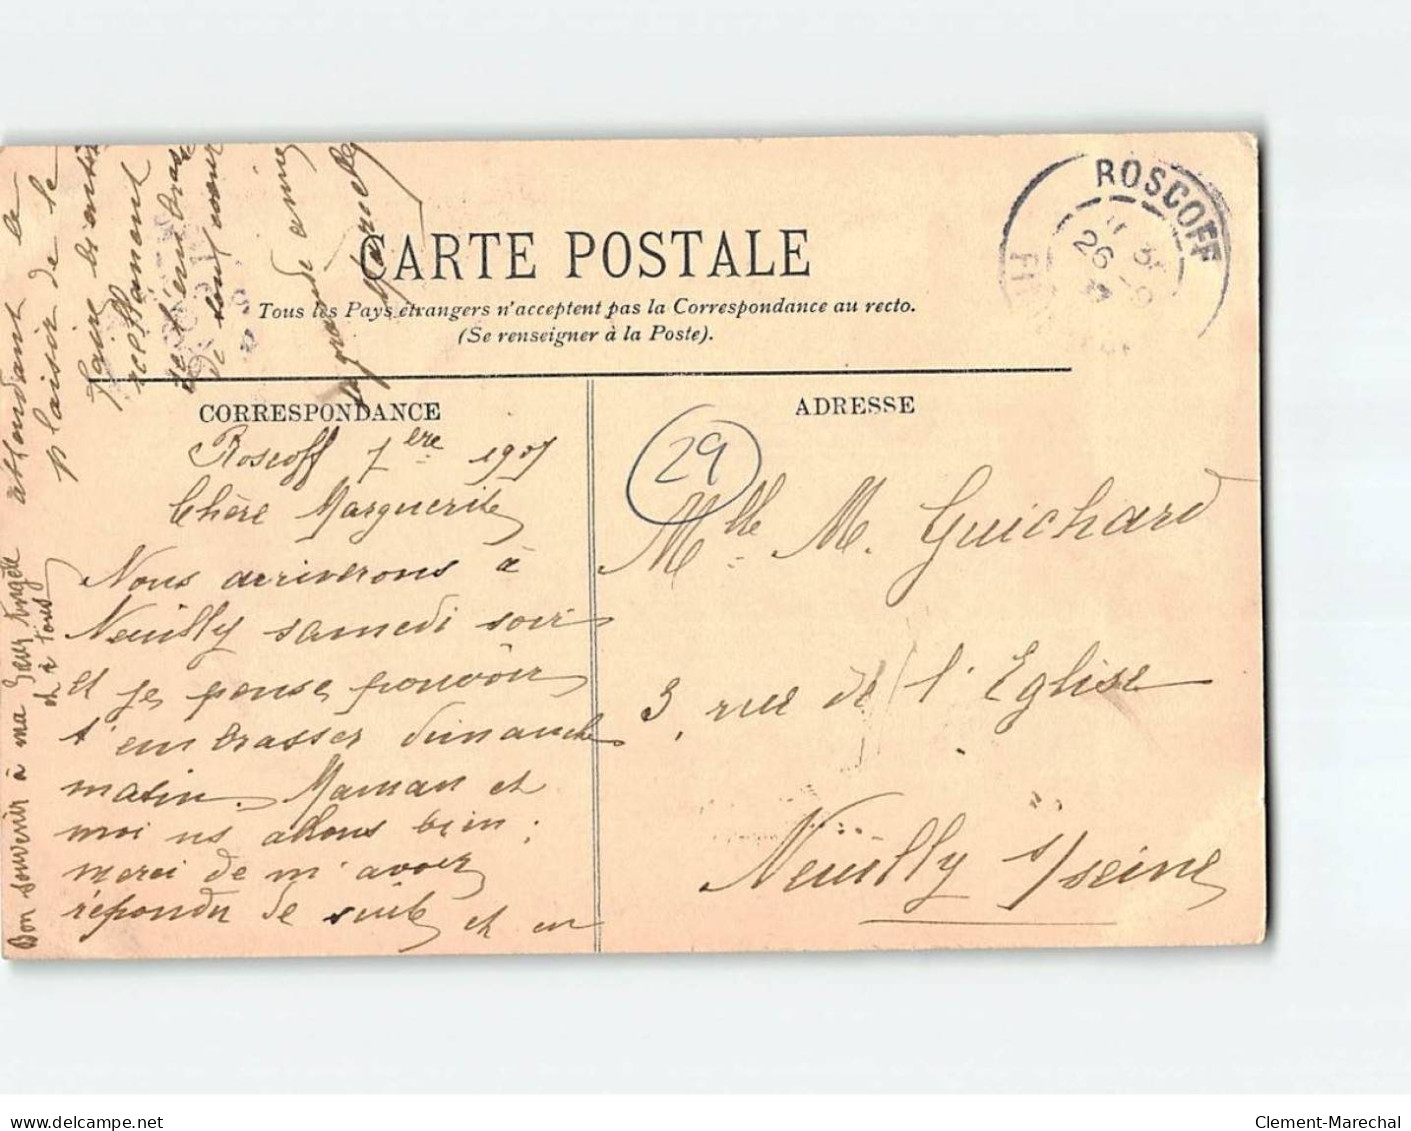 CARTE POSTALE
Tous les Pays étrangers n'acceptent pas la Correspondance au recto.
(Se renseigner à la Poste).
CORRESPONDANCE
ADRESSE
ROSCOFF
26
29
Roscoff 7ere 1907
Chère Marguerite
Nous arriverons à
Neuilly samedi soir
et je pense pouvoir
t'embrasser dimanche
matin. Maman et
moi ns allons bien ;
merci de m'avoir
répondu de suite et en
attendant le
plaisir de le
faire bientôt
réellement
je t'embrasse
de tout cœur
ta grande amie
Marcelle
Bon souvenir à ma sœur Angèle
et à tous
Mlle M. Guichard
3, rue de l'Eglise
Neuilly s/seine
www.delcampe.net
Clement-Marechal